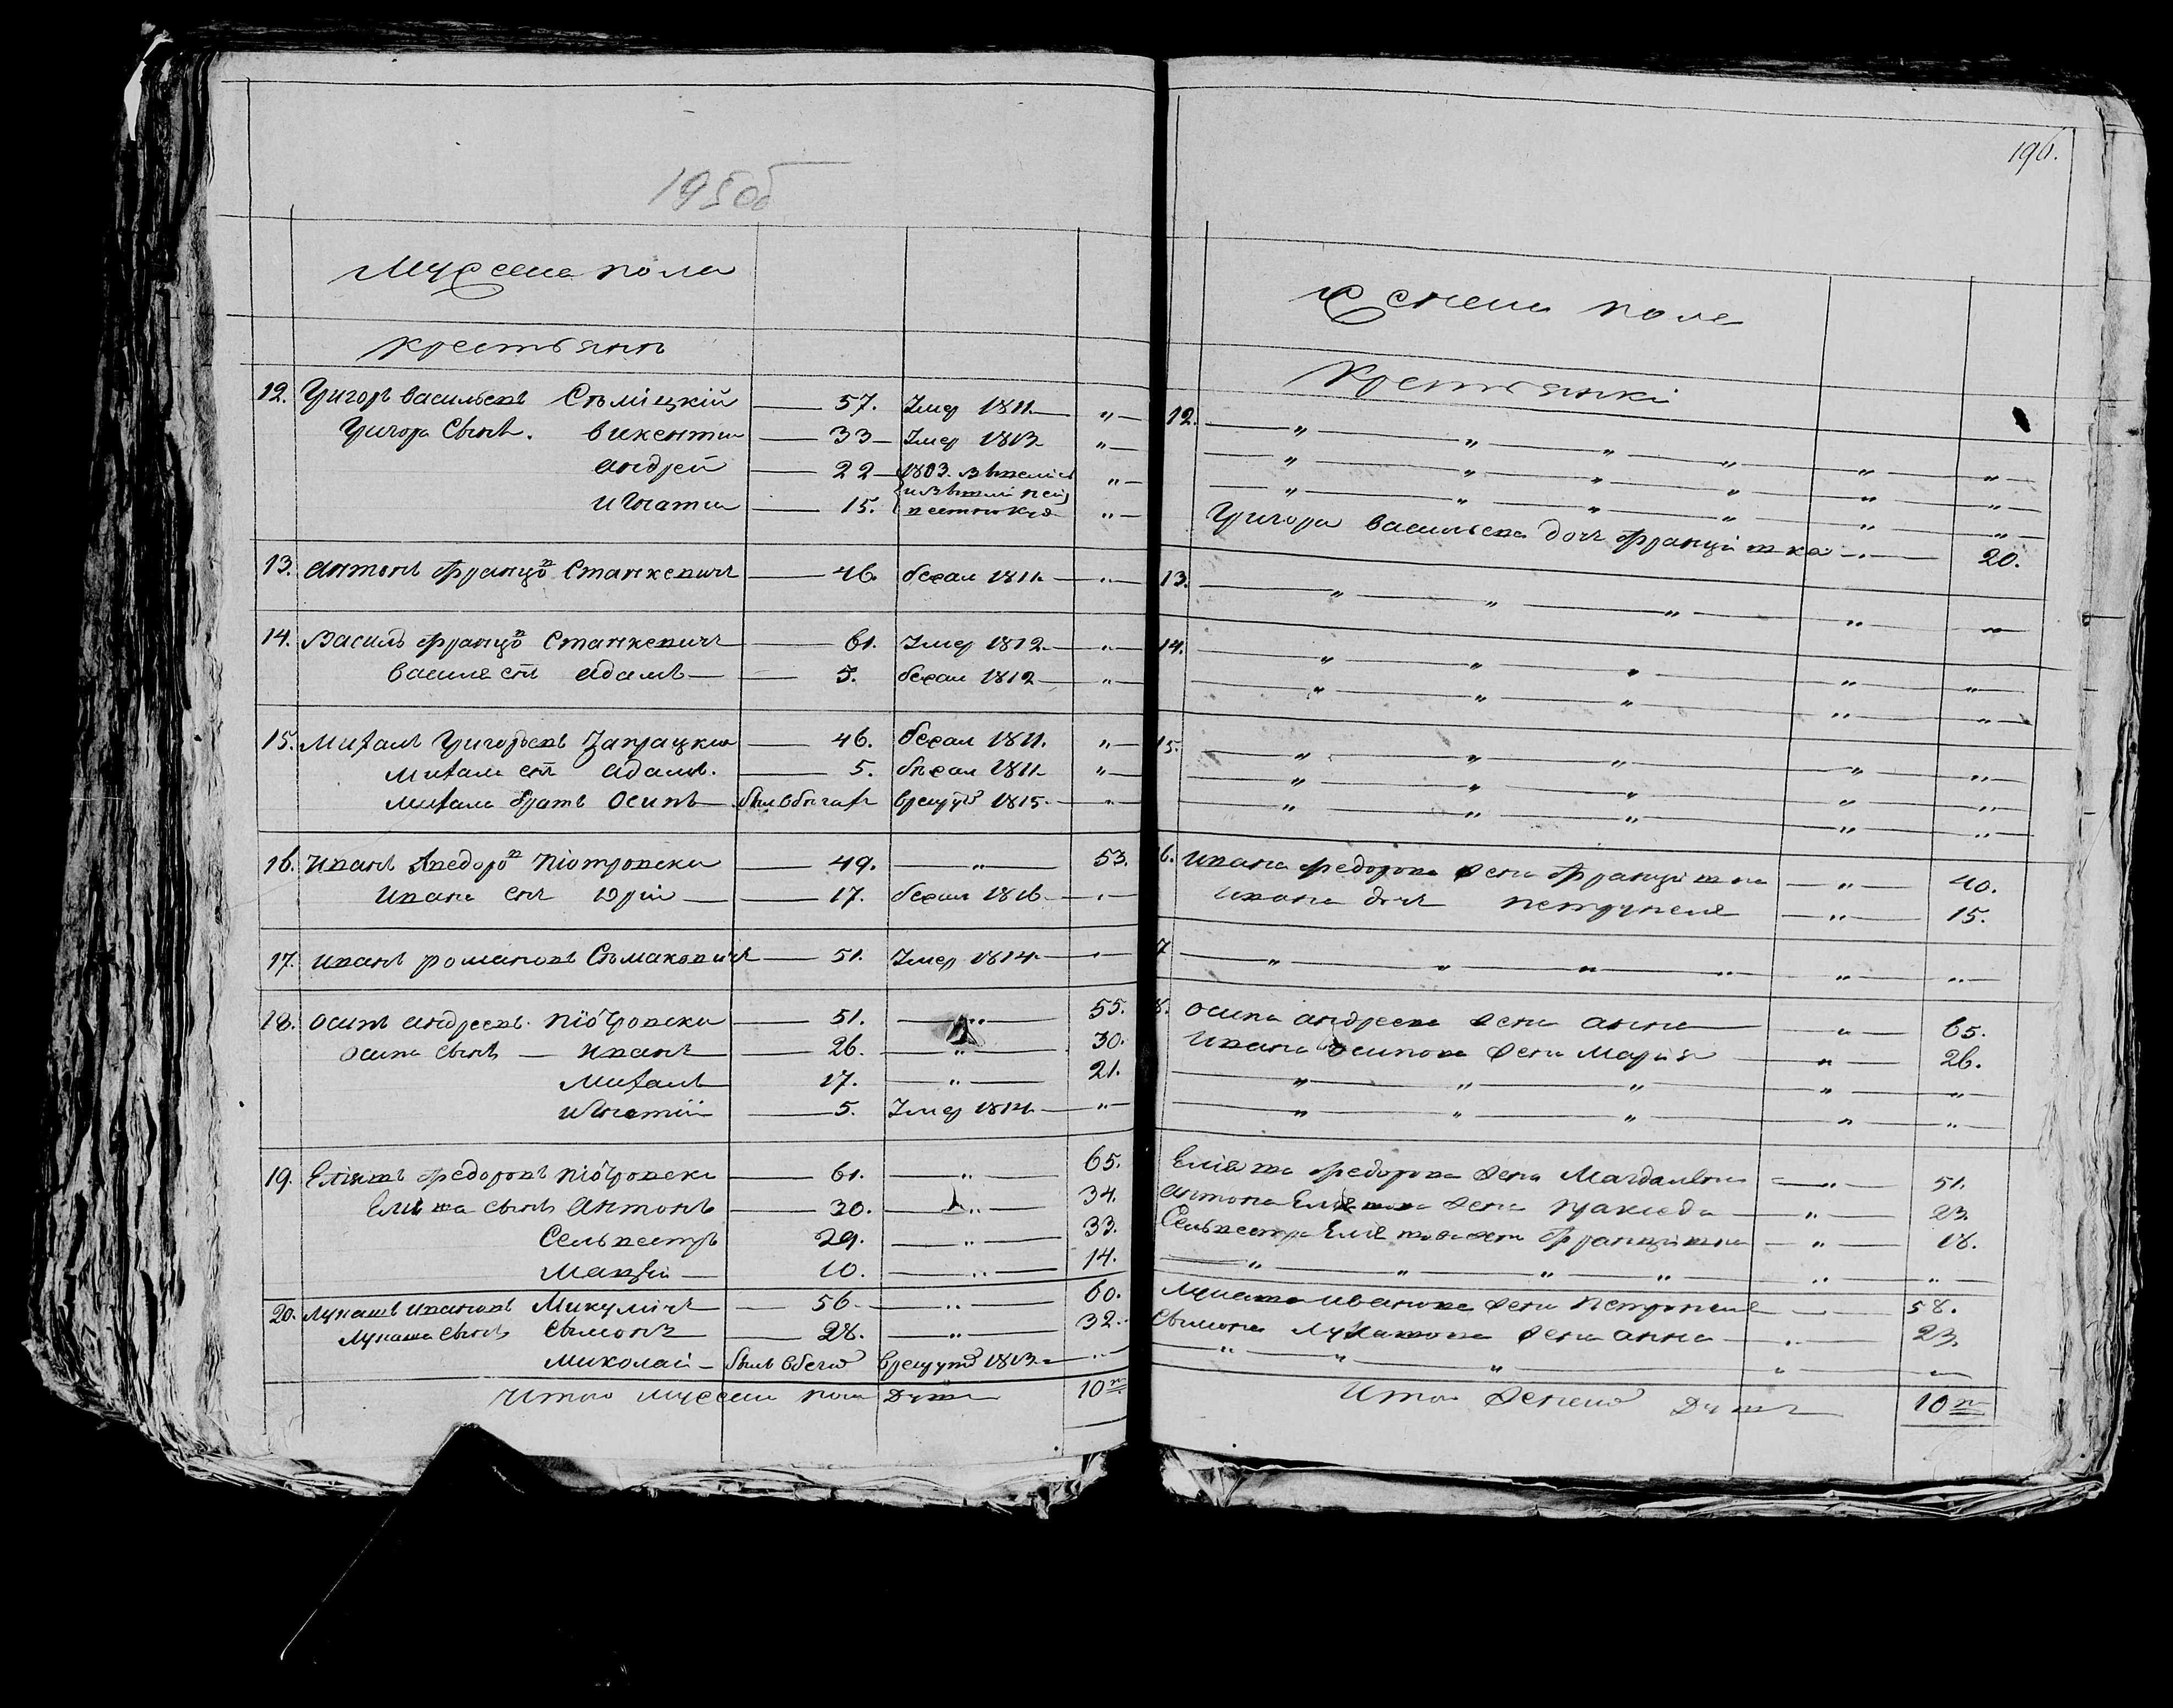 195об
Мужеска пола
крестьянъ
12. Григоръ васильевъ Съміцкій 57. Умер 1811
Григора Сынъ. викентии 33 Умер 1813
андрей 22 1803.
игнатии 15.
13. антонъ Францов Станкевичъ 46. бежал 1811
14. Василь Францов Станкевичъ 61. Умер 1812
василя сын адамъ 5. бежал 1812
15. Михалъ Григорьевъ 46. бежал 1811
Михала сын адамъ. 5. бежал 1811
Михала братъ Осипъ 1815
16. Иванъ Федоров Піотровски 49. „ 53.
Ивана сын Юрій 17. бежал 1816
17. иванъ романовъ Съмаковичъ 51. Умер 1814
18. осипъ андреевъ Піотровски 51. „ 55.
осипа сынъ иванъ 26. „ 30.
Михалъ 17. „ 21.
игнатій 5. Умер 1814
19. Еліяшъ Федоровъ Піотровски 61. „ 65.
Еліяша сынъ Антонъ 30. „ 34.
Сельвестръ 29. „ 33.
Мацѣй 10. „ 14.
20. Лукашъ ивановъ Микулічъ 56 „ 60.
Лукаша сынъ Сымонъ 28. „ 32.
Миколай 1813
Итого мужеска пола Душъ 10
196.
Женска пола
Крестьянкі
12. „ „ „ „ „ „
„ „ „ „ „ „
„ „ „ „ „ „
Григора васильева дочь Францішка „ 20.
13. „ „ „ „ „
14. „ „ „ „ „
„ „ „ „ „
15. „ „ „ „ „
„ „ „ „ „
„ „ „ „ „
16. ивана Федорова жена Францішка „ 40.
ивана дочь петрунеля „ 15.
17 „ „ „ „ „ „
18. осипа андреева жена анна „ 65.
ивана осипова жена Марія „ 26.
„ „ „ „ „
„ „ „ „ „
Еліяша Федорова жена Магдалена „ 51.
антона Еліяшова жена „ 23.
Сельвестра Еліяшова жена Францішка „ 18.
„ „ „ „ „ „
Лукаша иванова жена петрунеля 58.
Сымона Лукашова жена анна „ 23.
„ „ „ „ „
Итого женска Душъ 10